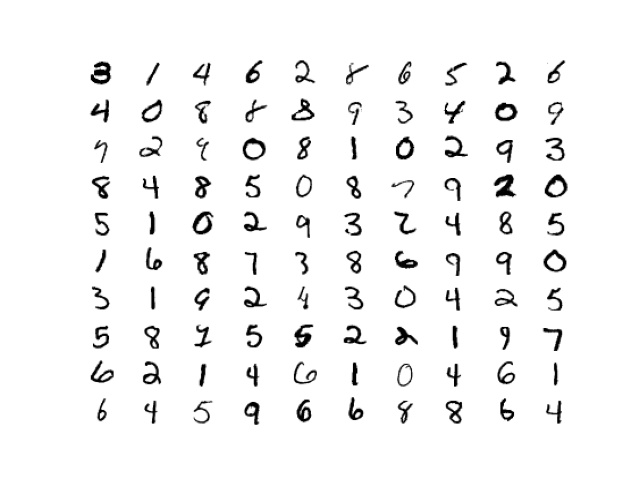 3 1 4 6 2 8 6 5 2 6
4 0 8 8 8 9 3 4 0 9
9 2 9 0 8 1 0 2 9 3
8 4 8 5 0 8 7 9 2 0
5 1 0 2 9 3 2 4 8 5
1 6 8 7 3 8 6 9 9 0
3 1 9 2 4 3 0 4 2 5
5 8 1 5 5 2 2 1 9 7
6 2 1 4 6 1 0 4 6 1
6 4 5 9 6 6 8 8 6 4